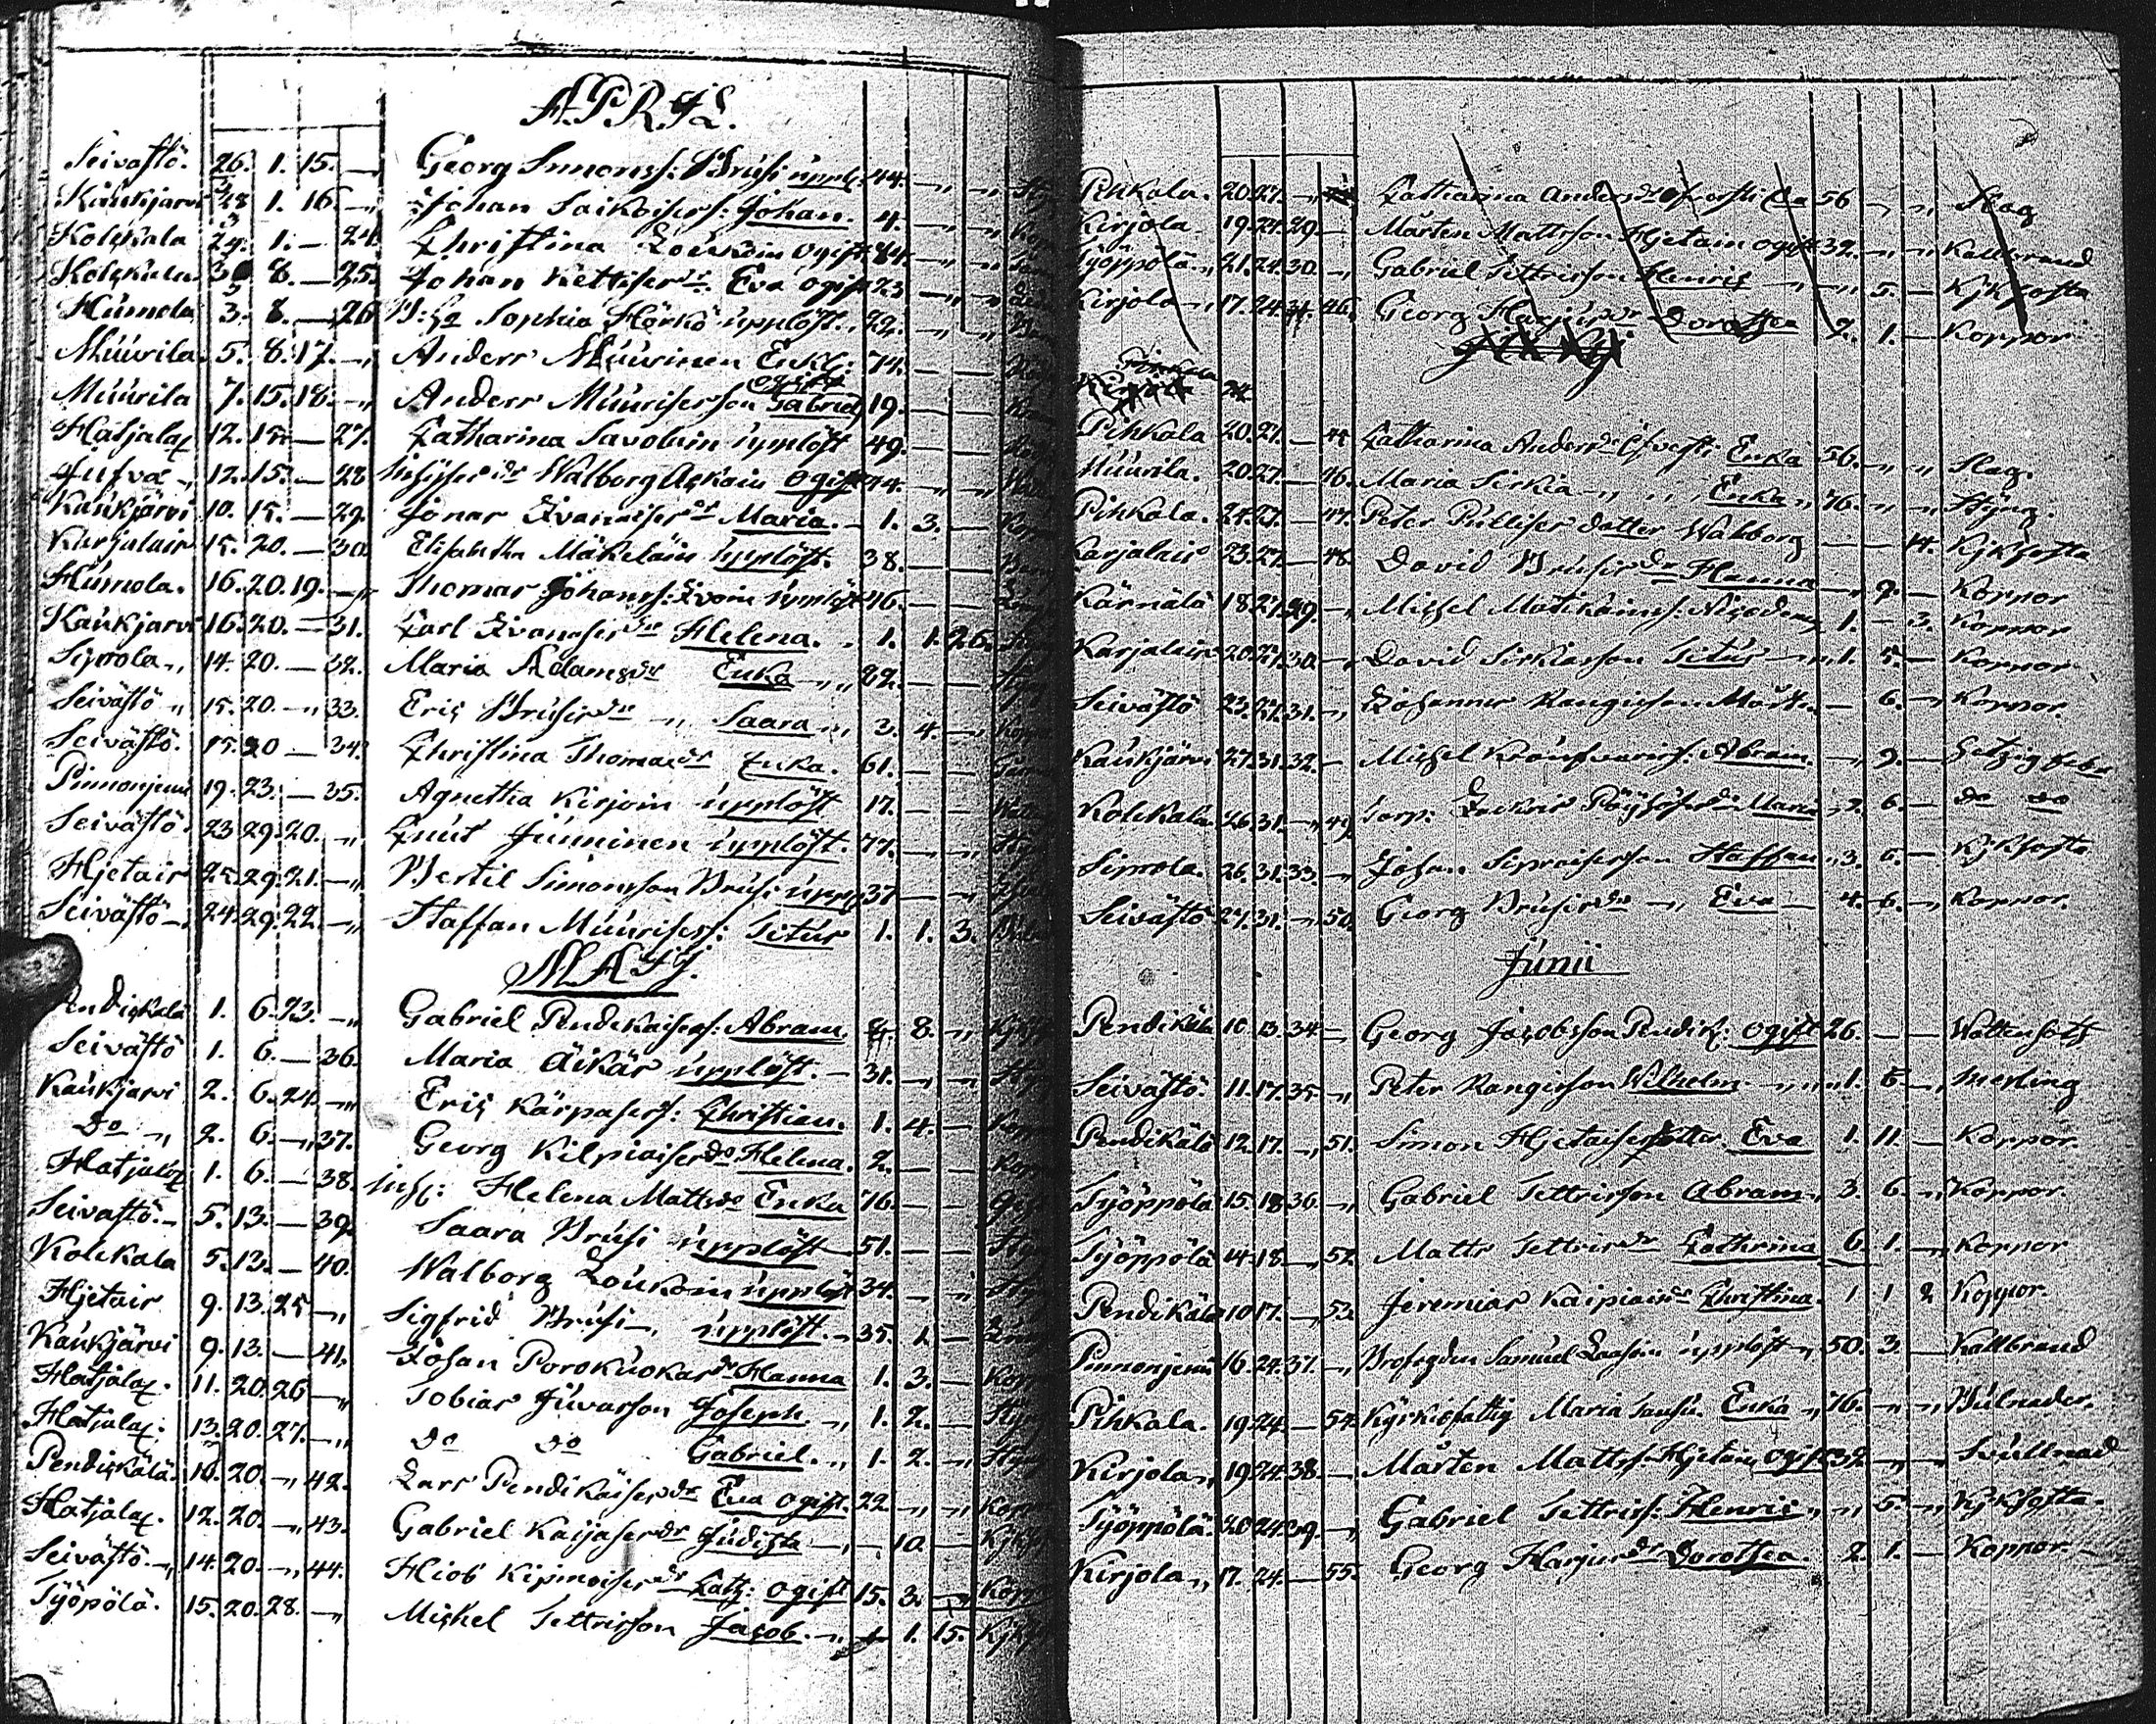 APRIL.
Seivästö. 26. 1. 15. — Georg Simonss: Brusi upplöst 44. — „
Kaukjärvi 28 1. 16. — Johan Saikoisers: Johan. 4. — „
Kolckala 29. 1. — 24. Christina Loukoin Ogift 84. — „
Kolckala 30 8. — 25. Johan Kettiser dr Eva Ogift 23 — „
Humola 3. 8. — 26 B: Ha Sophia Hörkö upplöst. 22. — „
Muurila. 5. 8. 17. — „ Anders Muurinen Enkl: 74. — —
Muurila 7. 15. 18. — „ Anders Muuriserson Gabriel ogift 19. — —
Hatjalax 12. 15. — 27. Catharina Savolain upplöst 49. — —
Jufva „ 12. 15. — 28 Inhyses dr Walborg Ackain Ogift 44. — „
Kaukjärvi 10. 15. — 29. Jonas Ivanaiser dr Maria. 1. 3. —
Karjalais 15. 20. — 30. Elisabetha Mäkeläin upplöst. 38. — —
Humola. 16. 20. 19. — „ Thomas Johanss: Ivoin upplöst 46. — —
Kaukjärvi 16. 20. — 31. Carl Ivanaiser dr Helena. 1. 1. 26.
Siprola „ 14. 20. — 32. Maria Adams dr Enka — „ 22. — —
Seivästö „ 15. 20. — „ 33. Eric Brusis dr — „ Saara „ 3. 4. —
Seivästö. 15. 20 — 34. Christina Thomas dr Enka. 61. — —
Pinnonjemi 19. 23. — 35. Agnetha Kirjoin upplöst 17. — —
Seivästö. 23 29. 20. „ Cnut Junninen upplöst. 77. — „
Hjetais 25. 29. 21. — „ Bertil Simonsson Brusi uppl 37 — —
Seivästö —, 24. 29. 22. — „ Staffan Muuriss: Titus 1. 1. 3.
MAJI.
Pendickala 1. 6. 23. — „ Gabriel Pendikaisers: Abram. 4. 8. — „
Seivästö 1. 6. — 36. Maria Äikäs upplöst. — 31. — „ —
Kaukjarvi 2. 6. 24. — „ Eric Kärpasers: Christian. 1. 4. —
Do — „ 2. 6. — „ 37. Georg Kilpiaiser dr Helena. 2. — —
Hatjalax 1. 6. — 38. inh: Helena Matts dr Enka 76. — —
Seivastö. — 5. 13. — 39. Saara Brusi upplöst 51. — —
Kolckala 5. 13. — 40. Walborg Loukoin upplöst 34. — „
Hjetais 9. 13. 25 — „ Sigfrid Brusi —, upplöst. — 35. 1. —
Kaukjärvi 9. 13. — 41. Johan Porokuokas dr Hanna 1. 3. —
Hatjälax. 11. 20. 26 — „ Tobias Juvasson Joseph — „ 1. 2. —
Hatjalax. 13. 20. 27. — „ do do Gabriel. — „ 1. 2. —
Pendickälä. 10. 20. — „ 42. Lars Pendikäiser dr Eva Ogift. 22. — „ — „
Hatjälax. 12. 20. — „ 43. Gabriel Kaijaser dr Judista — „ — 10. —
Seivästö. — „ 14. 20. — „ 44. Hiob Kipinoiser dr Cath: Ogift 15. 3. — „
Työpölä. 15. 20. 28. — „ Michel Tettrisson Jacob. — „ 1 1. 15.
Pihkala. 20. 27. — „ Catharina Anders dr Ea 56 — „ Slag
Kirjola 19. 24. 29. — Mårten Mattsson Hjetain ogift 32. — „ Kallbrand
Työppölä „ 21. 24. 30. — „ Gabriel Tettrisson Henric — „ 5. — Kjkhosta
Kirjola — „ 17. 24. 31. 46. Georg Harjus dr Dorothea 2. 1. — Koppor
Pihkala 20. 27. — 44 Catharina Anders dr Enka 56. — „ — „ Slag.
Muurila. 20. 27. — 46. Maria Sirkia — „ „ Enka „ 76. — „ Styng.
Pihkala. 24. 27. — 47. Peter Pulliser dotter Walborg — — 14. Kjkhosta
Karjalais 23. 27. — 48. David Brusis dr Hanna — „ 9. — Koppor
Kärnälä 18. 27. 29. — „ Michel Matikainss: Nicodemus 1. — 3. Koppor
Karjalais 20. 27. 30. — „ David Sirkiasson Titus — „ 1. 5. — Koppor
Seivästö 23. 27. 31. — „ Johannes Rangisson Mårt. — 6. — „ Koppor.
Kaukjärvi 27. 31. 32. — Michel Abram. — „ 9. — Hetzig feber
Kolckala 26. 31. — „ 49. Torp: Maria „ 2. 6. — do do
Siprola. 26. 31. 33. — „ Johan Sipraiserson Staffan „ 3. 6. — Kjkhosta
Seivästö 27. 31. — „ 50. Georg Brusis dr — „ Eva — 4. 6. — „ Koppor.
Junii
Pendikäla 10. 13. 34. — Georg Jacobsson Pendik: Ogift 26. — — Wattensott
Seivästö. 11. 17. 35. — „ Peter Rangisson Wilhelm. — „ 1. 5. — „ Mesling
Pendikälä 12. 17. — „ 51. Simon Hjetaiserdotter. Eva 1. 11. — Koppor.
Työppölä 15. 18. 36. — „ Gabriel Tettrisson Abram „ 3. 6. — „ Koppor.
Työppölä 14. 18. — „ 52. Matts Tettris dr Cathrina 6. 1. — „ Koppor
Pendikälä 10 17. — „ 53. Jeremias Kaipiais dr Christina. 1. 1. 2 Koppor.
Pinnonjemi 16. 24. 37. — „ Samuel upplöst „ 50. 3. — Kallbrand
Pihkala. 19. 24. — 54. Kyrkiofattig Maria Enka „ 76. — „ — „
Kirjola „ 19. 24. 38. — „ Mårten Matts: Hjetain Ogift 32. — „ — „ Svullnad
Työppölä. 20 24. 39. — „ Gabriel Tettriss: Henric „ — „ 5. — „ Kjkhosta.
Kirjola „ 17. 24. — 55. Georg Harjus dr Dorothea. 2. 1. — Koppor.